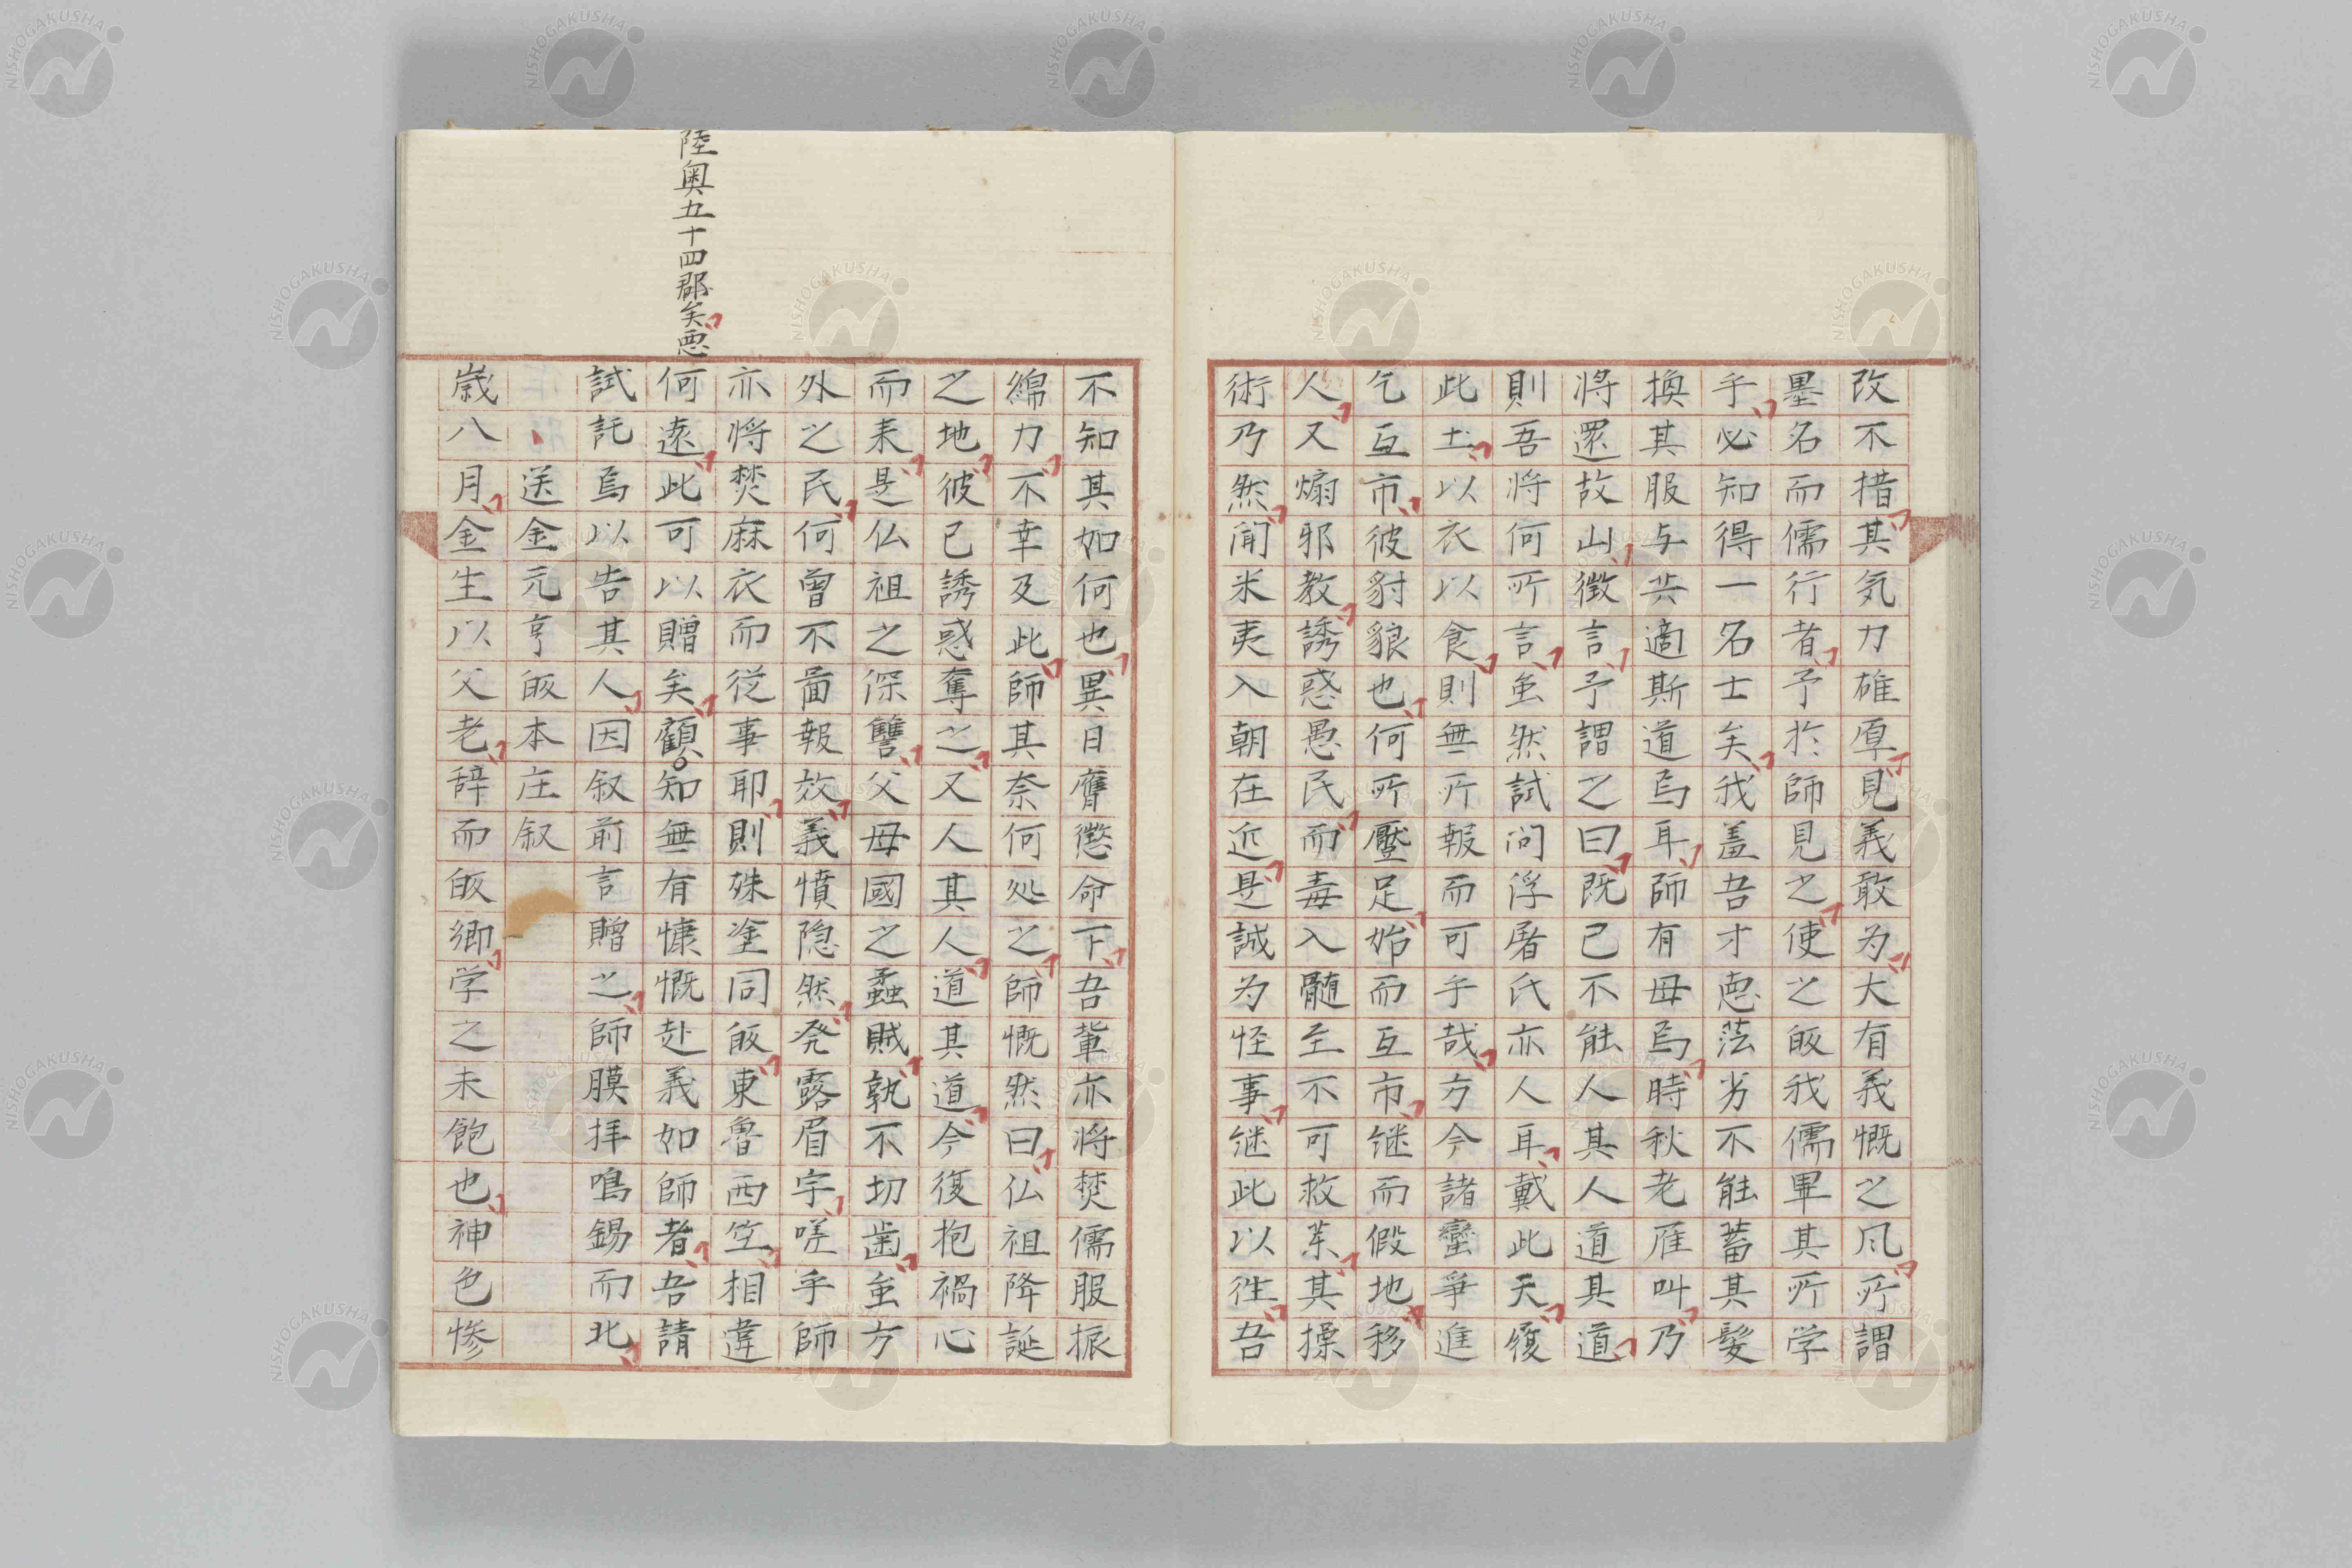 改不措其気力雄厚見義敢为大有義慨之凨所謂
墨名而儒行者予於師見之使之皈我儒畢其所学
乎必知得一名士矣我盖吾才悳蕩劣不能蓄其髮
換其服与共適斯道焉耳師有母焉時秋老雁叫乃
将還故山徴言予謂之曰既已不能人其人道其道
則吾将何所言虽然試问浮屠氏亦人耳戴此天復
此土以衣以食則無所報而可乎哉方今諸蠻爭進
乞互市彼豺狼也何所壓足始而互市继而假地移
人又煽邪教誘惑愚民而毒入髓至不可救茱其操
術乃然闻米夷入朝在近是誠为怪事继此以徃吾
不知其如何也異日膺懲命下吾輩亦将焚儒服振
綿力不幸及此師其奈何処之師慨然曰仏祖降誕
之地彼已誘惑奪之又人其人道其道今復抱禍心
而来是仏祖之深讐父母國之蟊賊孰不切歯虽方
外之民何曾不啚報效義憤隐然発露眉宇嗟乎師
亦将焚麻衣而従事耶則殊塗同皈東魯西竺相違
何遠此可以贈矣顧知無有慷慨赴義如師者吾請
陸奥五十四郡矣悳
試託焉以告其人因叙前言贈之師膜拝鳴錫而北
送金元亨皈本庄叙
歳八月金生以父老辞而皈卿学之未飽也神色惨
NISHOGAKUSHA